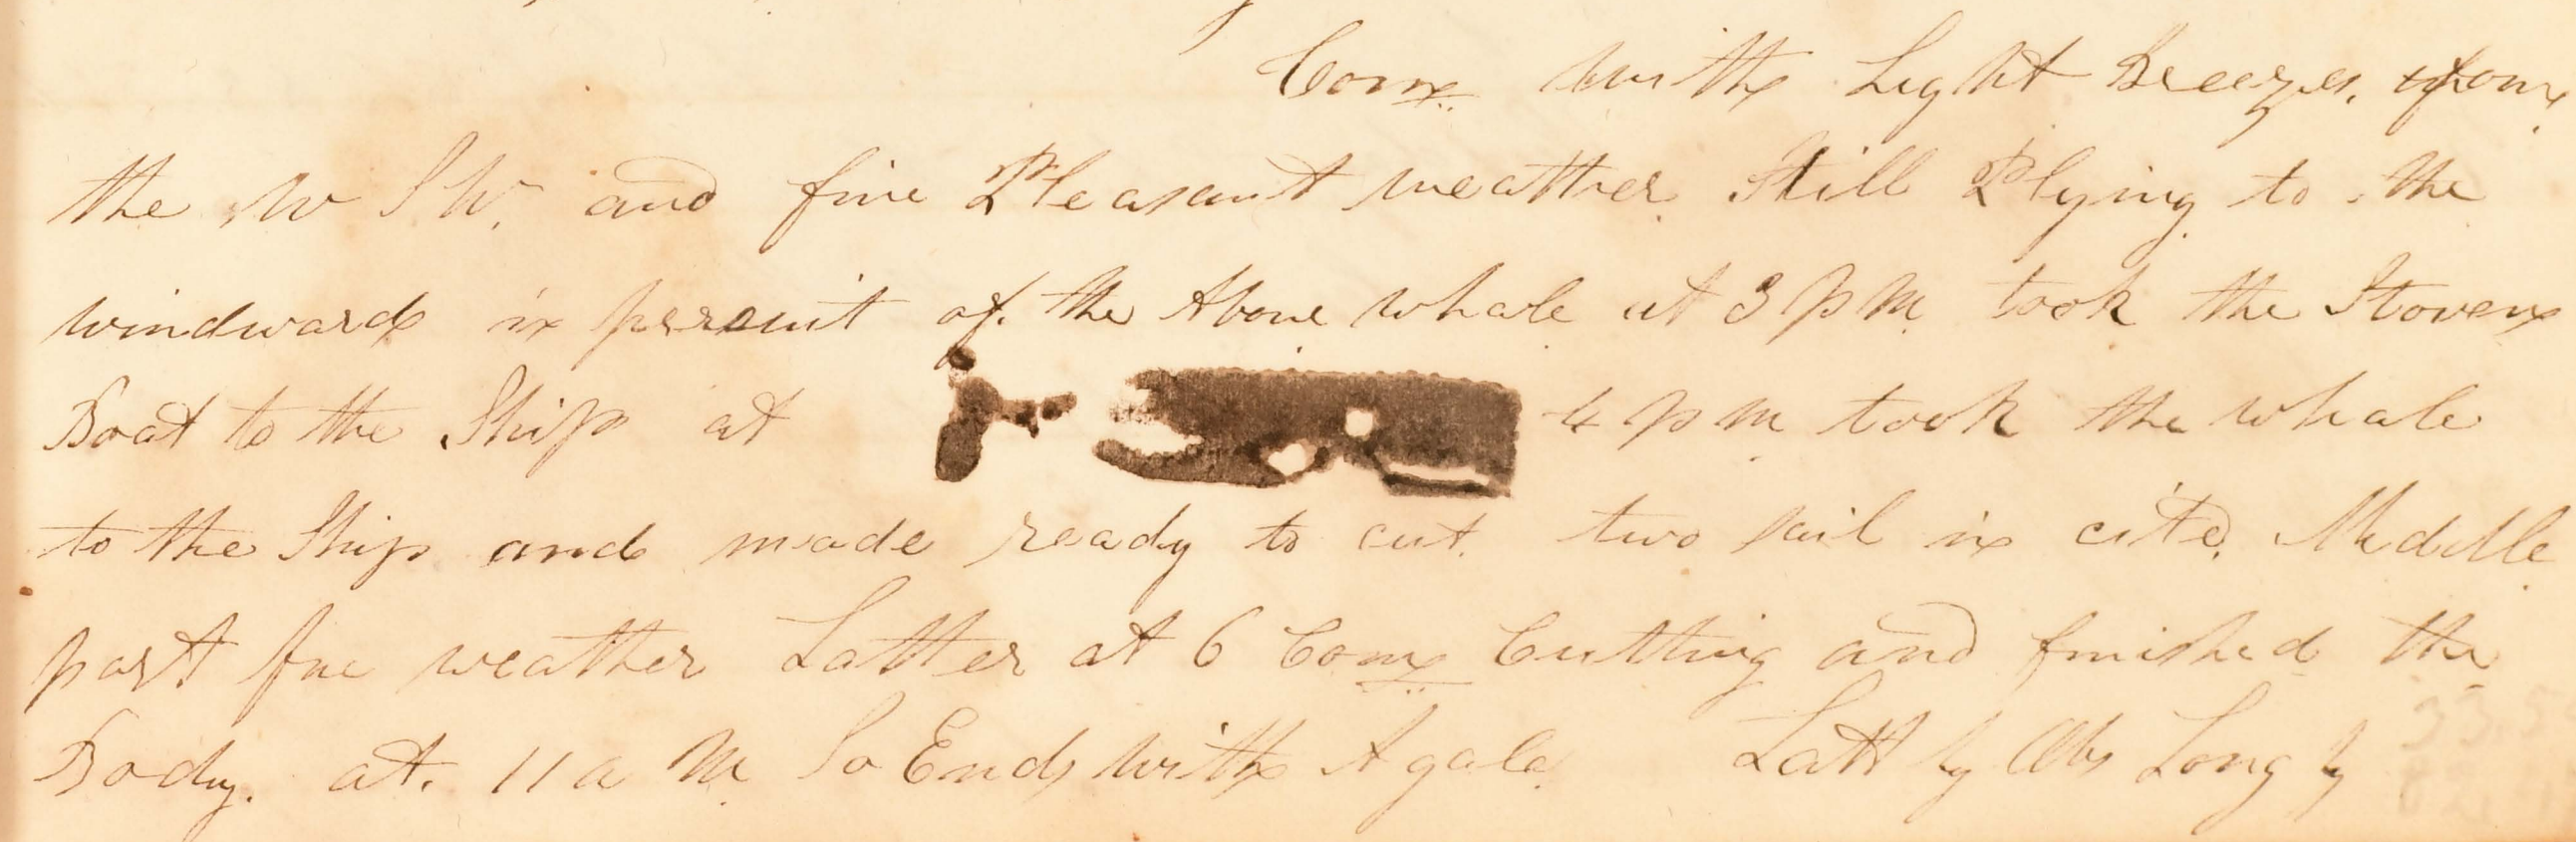 Come with Light Breezes, from
the W S W. and fine Pleasant weather Still Plying to the
windward in persuit of the Above whale at 3 P M took the Stoven
Boat to the Ship at 4 P M took the whale
to the Ship and made ready to cut. two sail in cite, Meddle
part fine weather Latter at 6 Come Cutting and finished the
Body. at. 11 a M So Ends with A gale Latt by Obs Long by